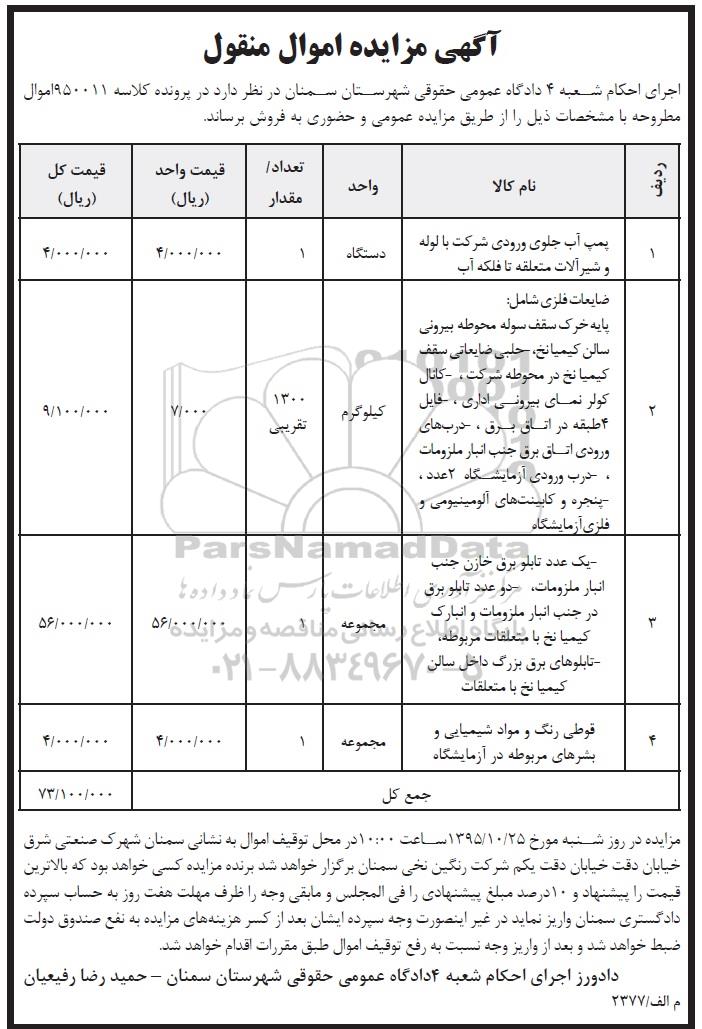 آگهی مزایده اموال منقول
اجرای احکام شعبه ۴ دادگاه عمومی حقوقی شهرستان سمنان در نظر دارد در پرونده کلاسه ۹۵۰۰۱۱اموال
مطروحه با مشخصات ذیل را از طریق مزایده عمومی و حضوری به فروش برساند.
ردیف نام کالا واحد تعداد/ مقدار قیمت واحد (ریال) قیمت کل (ریال)
۱ پمپ آب جلوی ورودی شرکت با لوله دستگاه ۱ ۴/۰۰۰/۰۰۰ ۴/۰۰۰/۰۰۰
و شیرآلات متعلقه تا فلکه آب
ضایعات فلزی شامل:
پایه خرک سقف سوله محوطه بیرونی
سالن کیمیا نخ،-حلبی ضایعاتی سقف
کیمیا نخ در محوطه شرکت ، -کانال
کولر نمای بیرونی اداری ، -فایل
۲ ۴طبقه در اتاق برق ، -درب‌های کیلوگرم ۱۳۰۰ تقریبی ۷/۰۰۰ ۹/۱۰۰/۰۰۰
ورودی اتاق برق جنب انبار ملزومات
، -درب ورودی آزمایشگاه ۲عدد ،
-پنجره و کابینت‌های آلومینیومی و
فلزی آزمایشگاه
-یک عدد تابلو برق خازن جنب
انبار ملزومات، -دو عدد تابلو برق
۳ در جنب انبار ملزومات و انبارک مجموعه ۱ ۵۶/۰۰۰/۰۰۰ ۵۶/۰۰۰/۰۰۰
کیمیا نخ با متعلقات مربوطه،
-تابلوهای برق بزرگ داخل سالن
کیمیا نخ با متعلقات
۴ قوطی رنگ و مواد شیمیایی و مجموعه ۱ ۴/۰۰۰/۰۰۰ ۴/۰۰۰/۰۰۰
بشرهای مربوطه در آزمایشگاه
جمع کل ۷۳/۱۰۰/۰۰۰
ParsNamadData
مرکز فرآوری اطلاعات پارس نماد داده ها
پایگاه اطلاع رسانی مناقصه و مزایده
۰۲۱-۸۸۳۴۹۶۷۰-۵
مزایده در روز شنبه مورخ ۱۳۹۵/۱۰/۲۵ساعت ۱۰:۰۰در محل توقیف اموال به نشانی سمنان شهرک صنعتی شرق
خیابان دقت خیابان دقت یکم شرکت رنگین نخی سمنان برگزار خواهد شد برنده مزایده کسی خواهد بود که بالاترین
قیمت را پیشنهاد و ۱۰درصد مبلغ پیشنهادی را فی المجلس و مابقی وجه را ظرف مهلت هفت روز به حساب سپرده
دادگستری سمنان واریز نماید در غیر اینصورت وجه سپرده ایشان بعد از کسر هزینه‌های مزایده به نفع صندوق دولت
ضبط خواهد شد و بعد از واریز وجه نسبت به رفع توقیف اموال طبق مقررات اقدام خواهد شد.
دادورز اجرای احکام شعبه ۴دادگاه عمومی حقوقی شهرستان سمنان – حمید رضا رفیعیان
م الف/۲۳۷۷